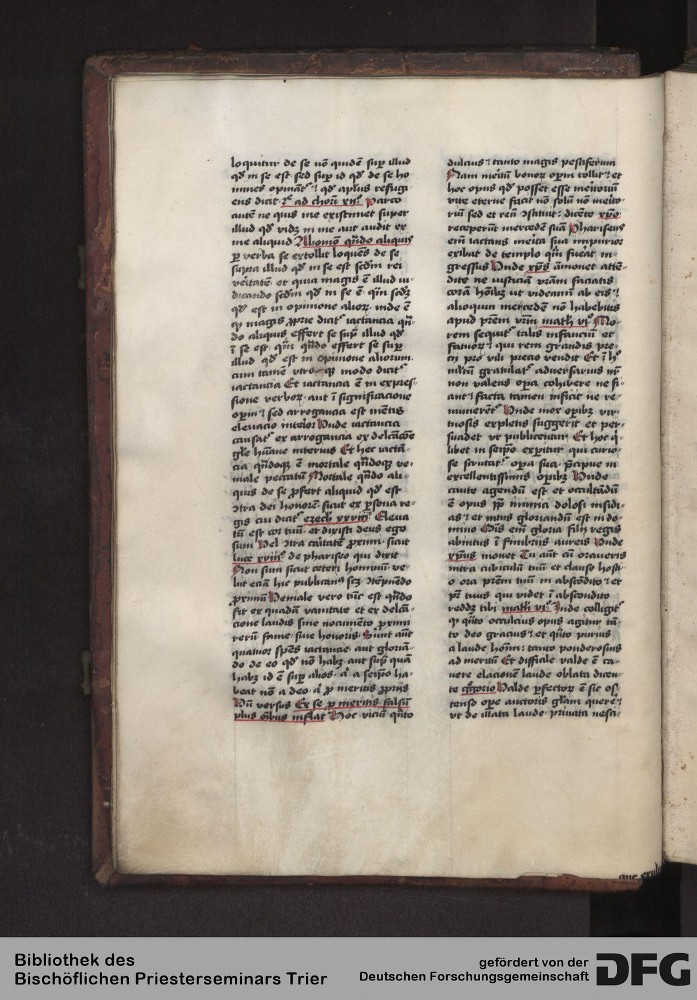 loquitur de se nō quidē supͬ illud
qd̓ in se est sed supͬ id qd̓ de se ho
mines opinātͬ ꝛ qd̓ aplūs refugi
ens dicit 2ͣ ad choꝝ xijͦ Parco
autē ne quis me existimet super
illud qd̓ videt in me aut audit ex
me aliquid Aliomō qn̄do aliquis
ꝑ verba se extollit loquēs de se
supra illud qd̓ in se est scdm̄ rei
veritatē et quia magis ē illud iu-
dicando scdm̄ qd̓ in se ē qm̄ scdꝫ
qd̓ est in opinione alioꝝ inde ē
ꝙ magis ꝓprie dicitͬ iactancia qn̄
do aliquis effert se supͬ illud qd̓
ī se est qm̄ qn̄do effert se supͬ
illud qd̓ est in opinione aliorum
cum tamē utroqꝫ modo dicitͬ
iactancia Et iactancia ē in expres
sione verboꝝ aut ī significacione
opm̄ ꝛ sed arrogancia est mētis
elevacio interioͬ Unde iactancia
causatͬ ex arrogancia ex delcācōe
gl̄e hūane interius Et hec iactā
cia qn̄doqꝫ ē mortale qn̄doqꝫ ve
niale peccatū Mortale qn̄do ali
quis de se ꝓfert aliquid qd̓ est
ꝯtra dei honorē sicut ex ꝑsona re
gis cui dicitͬ ezech xxviijͦ Eleva
tū est cor tuū et dixisti deus ego
sum Vel ꝯtra caͬitatē ꝓximi sicut
luce xviijͦ de phariseo qui dixit
Non sum sicut ceteri hominū ve
lut eciā hic publicanꝰ scꝫ ꝯtēpnēdo
ꝓximū Veniale vero tūc est qn̄do
fit ex quadā vanitate et ex delcā-
cione laudis sine nocumēto ꝓximi
rerū fame sive honoris Sunt aūt
quatuor spēs iactancie aut gloriā
do de eo qd̓ non habꝫ aut supͬ quā
habꝫ id ē supͬ alios aͭ a seipō ha
beat non a deo aͭ ꝓ meritis ꝓprijs
Vn̄ versus Ex se ꝓ meritis falsū
plus oībus inflat Hoc viciū qn̄to
dulcius ꝛ tanto magis pestiferum
Nam meritū bonoꝝ opm̄ tollit ꝛ et
hoc opus qd̓ posset esse meritoriū
vite eterne facit nō solū nō merito
riū sed et reū ꝯstituit dicēte xp̄o
receperunt mercedē suā Phariseus
em̄ iactans merita sua impurior
exibat de templo qm̄ fuerat in-
gressus Unde xp̄s āmonet attē-
dite ne iusticiā vr̄am faciatis
corā hoībꝫ ut videamī ab eis ꝛ
alioquin mercedē nō habebitis
apud prēm vr̄m math vjͦ Mo-
rem sequitͬ talis infanciū et
fatuoꝝ ꝛ qui rem grandis pre-
cij pro vili precio vendit Et ī hͦ
multū gratulatͬ adversarius nr̄
non valens opa cohibere ne fi-
ant ꝛ facta tamen inficit ne re-
munerētͬ Unde mox opibꝫ vir-
tuosis expletis suggerit et per-
suadet ut publicentur Et hoc q̓
libet in seipō expitur qui curio-
se scrutatͬ opa sua p̄cipue in
excellentissimis opibꝫ Unde
caute agendū est et occultādū
ē opus ꝓpͭ nimia dolosi insidi-
as ꝛ et intus gloriandū est in do-
mino Oīs em̄ gloria filij regis
abintus ī fimbriis aureis Unde
xp̄us monet Tu aūt cū oraveris
intra cubiculū tuū et clauso hosti-
o ora prēm tuū in abscōdito ꝛ et
pr̄ tuus qui videt ī abscondito
reddꝫ tibi math vjͦ Inde colligitͬ
ꝙ qn̄to occulcius opus agitur tā-
to deo gracius ꝛ et qn̄to purius
a laude hōis ꝛ tanto ponderosius
ad meritū Et difficile valde ē ca-
vere elacionē laude oblata dicen-
te gg̓orio Valde ꝑfectoꝝ ē sic os-
tenso ope auctoris glam querē ꝛ
ut de illata laude privata nesci-
Bibliothek des
Bischöflichen Priesterseminars Trier
gefördert von der
Deutschen Forschungsgemeinschaft
DFG